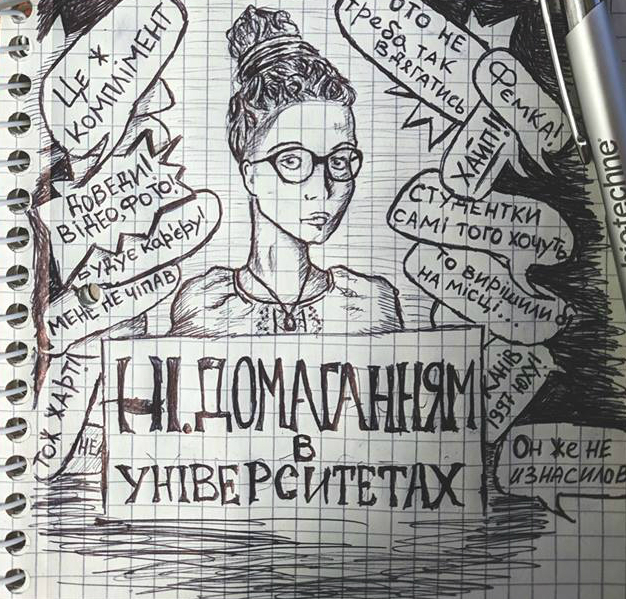 ЦЕ
КОМПЛІМЕНТ
ДОВЕДИ!
ВІДЕО, ФОТО!
БУДУЄ КАР'ЄРУ!
МЕНЕ НЕ ЧІПАВ
ТОЖ ЖАРТ!!
НЕ
ОТО НЕ
треба ТАК
ВДЯГАТИСЬ
ФЄМКА!
ХАЙП!!!
СТУДЕНТКИ
САМІ ТОГО ХОЧУТЬ
ТО ВИРІШИЛИ б
НА МІСЦІ...
КАНІВ
1997 ЮХУ!
Он же не
изнасилов
НІ. ДОМАГАННЯМ
В
УНІВЕРСИТЕТАХ